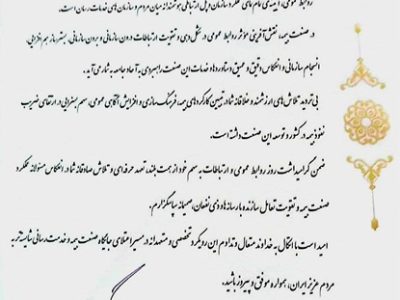 روابط عمومی، آیینه‌ی تمام نمای عملکرد سازمان و پل ارتباطی هوشمندانه میان مردم و سازمان‌های خدمات رسان است.
در صنعت بیمه، نقش آفرینی مؤثر روابط عمومی در شکل‌دهی و تقویت ارتباطات درون سازمانی و برون سازمانی، بستر ساز هم افزایی،
انسجام سازمانی و انعکاس دقیق و عمیق دستاوردها و خدمات این صنعت راهبردی به آحاد جامعه به شمار می‌آید.
بی تردید تلاش‌های ارزشمند و خلاقانه شما در تبیین کارکردهای بیمه، فرهنگ سازی و افزایش آگاهی عمومی، سهم بسزایی در ارتقای ضریب
نفوذ بیمه در کشور و توسعه این صنعت داشته است.
ضمن گرامیداشت روز روابط عمومی و ارتباطات به سهم خود از همت بلند، تعهد حرفه‌ای و تلاش صادقانه شما در انعکاس مسئولانه عملکرد
صنعت بیمه و تقویت تعامل سازنده با رسانه‌ها و ذی نفعان، صمیمانه سپاسگزارم.
امید است با اتکال به خداوند متعال و تداوم این رویکرد تخصصی و متعهدانه در مسیر اعتلای جایگاه صنعت بیمه و خدمت رسانی شایسته‌تر به
مردم عزیز ایران، همواره موفق و پیروز باشید.